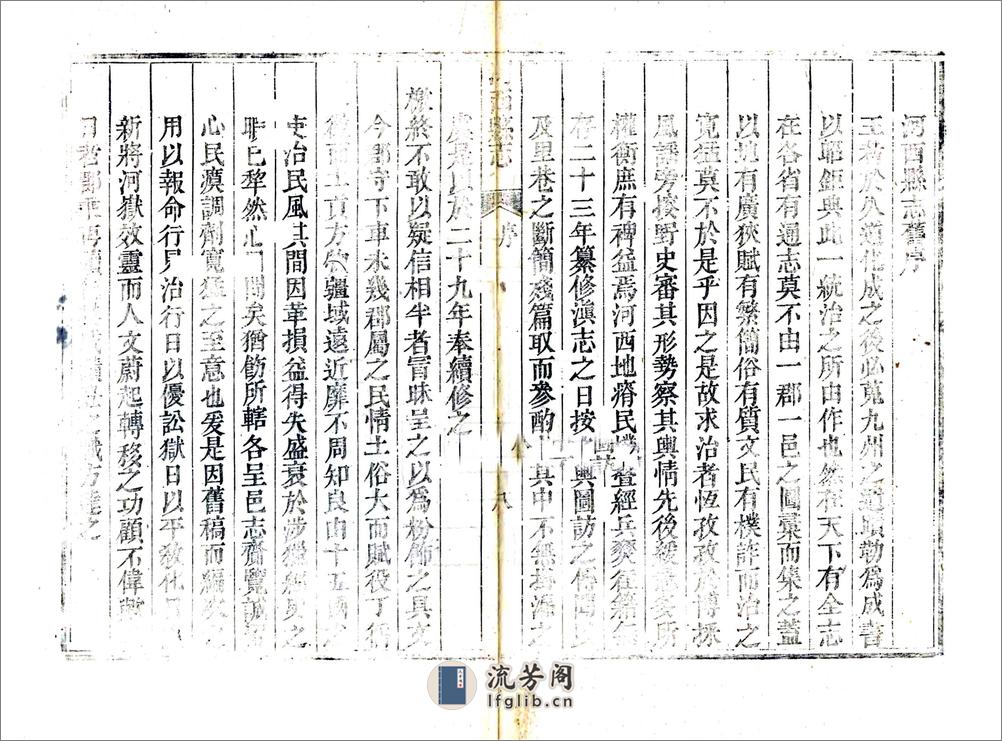 河西縣志舊序
王者於久道化成之後必蒐九州之道蹟勒爲成書
以昭鉅典此一統治之所由作也然在天下有全志
在各省有通志莫不由一郡一邑之圖彙而集之蓋
以地有廣狹賦有繁簡俗有質文民有樸詐而治之
寬猛莫不於是乎因之是故求治者恆孜孜於博採
風謠旁搜野史審其形勢察其輿情先後緩急爰所
權衡庶有裨益焉河西地瘠民樸查經兵燹往籍無
存二十三年纂修滇志之日按輿圖訪之傳聞
及里巷之斷簡殘篇取而參酌其中不無
是以於二十九年奉續修之
檄終不敢以疑信相半者冒昧呈之以爲粉飾之具文
今郡守下車未幾郡屬之民情土俗大而賦役丁徭
微而土貢方物疆域遠近靡不周知良由十五國之
吏治民風其間因革損益得失盛衰於涉獵經史之
時已犂然心目間矣猶飭所轄各呈邑志齎覽誠
心民瘼調劑寬猛之至意也爰是因舊稿而編次之
用以報命行見治行日以優訟獄日以平敎化日
新將河嶽效靈而人文蔚起轉移之功顧不偉歟
河西縣志
序
八
流芳阁
lfglib.cn